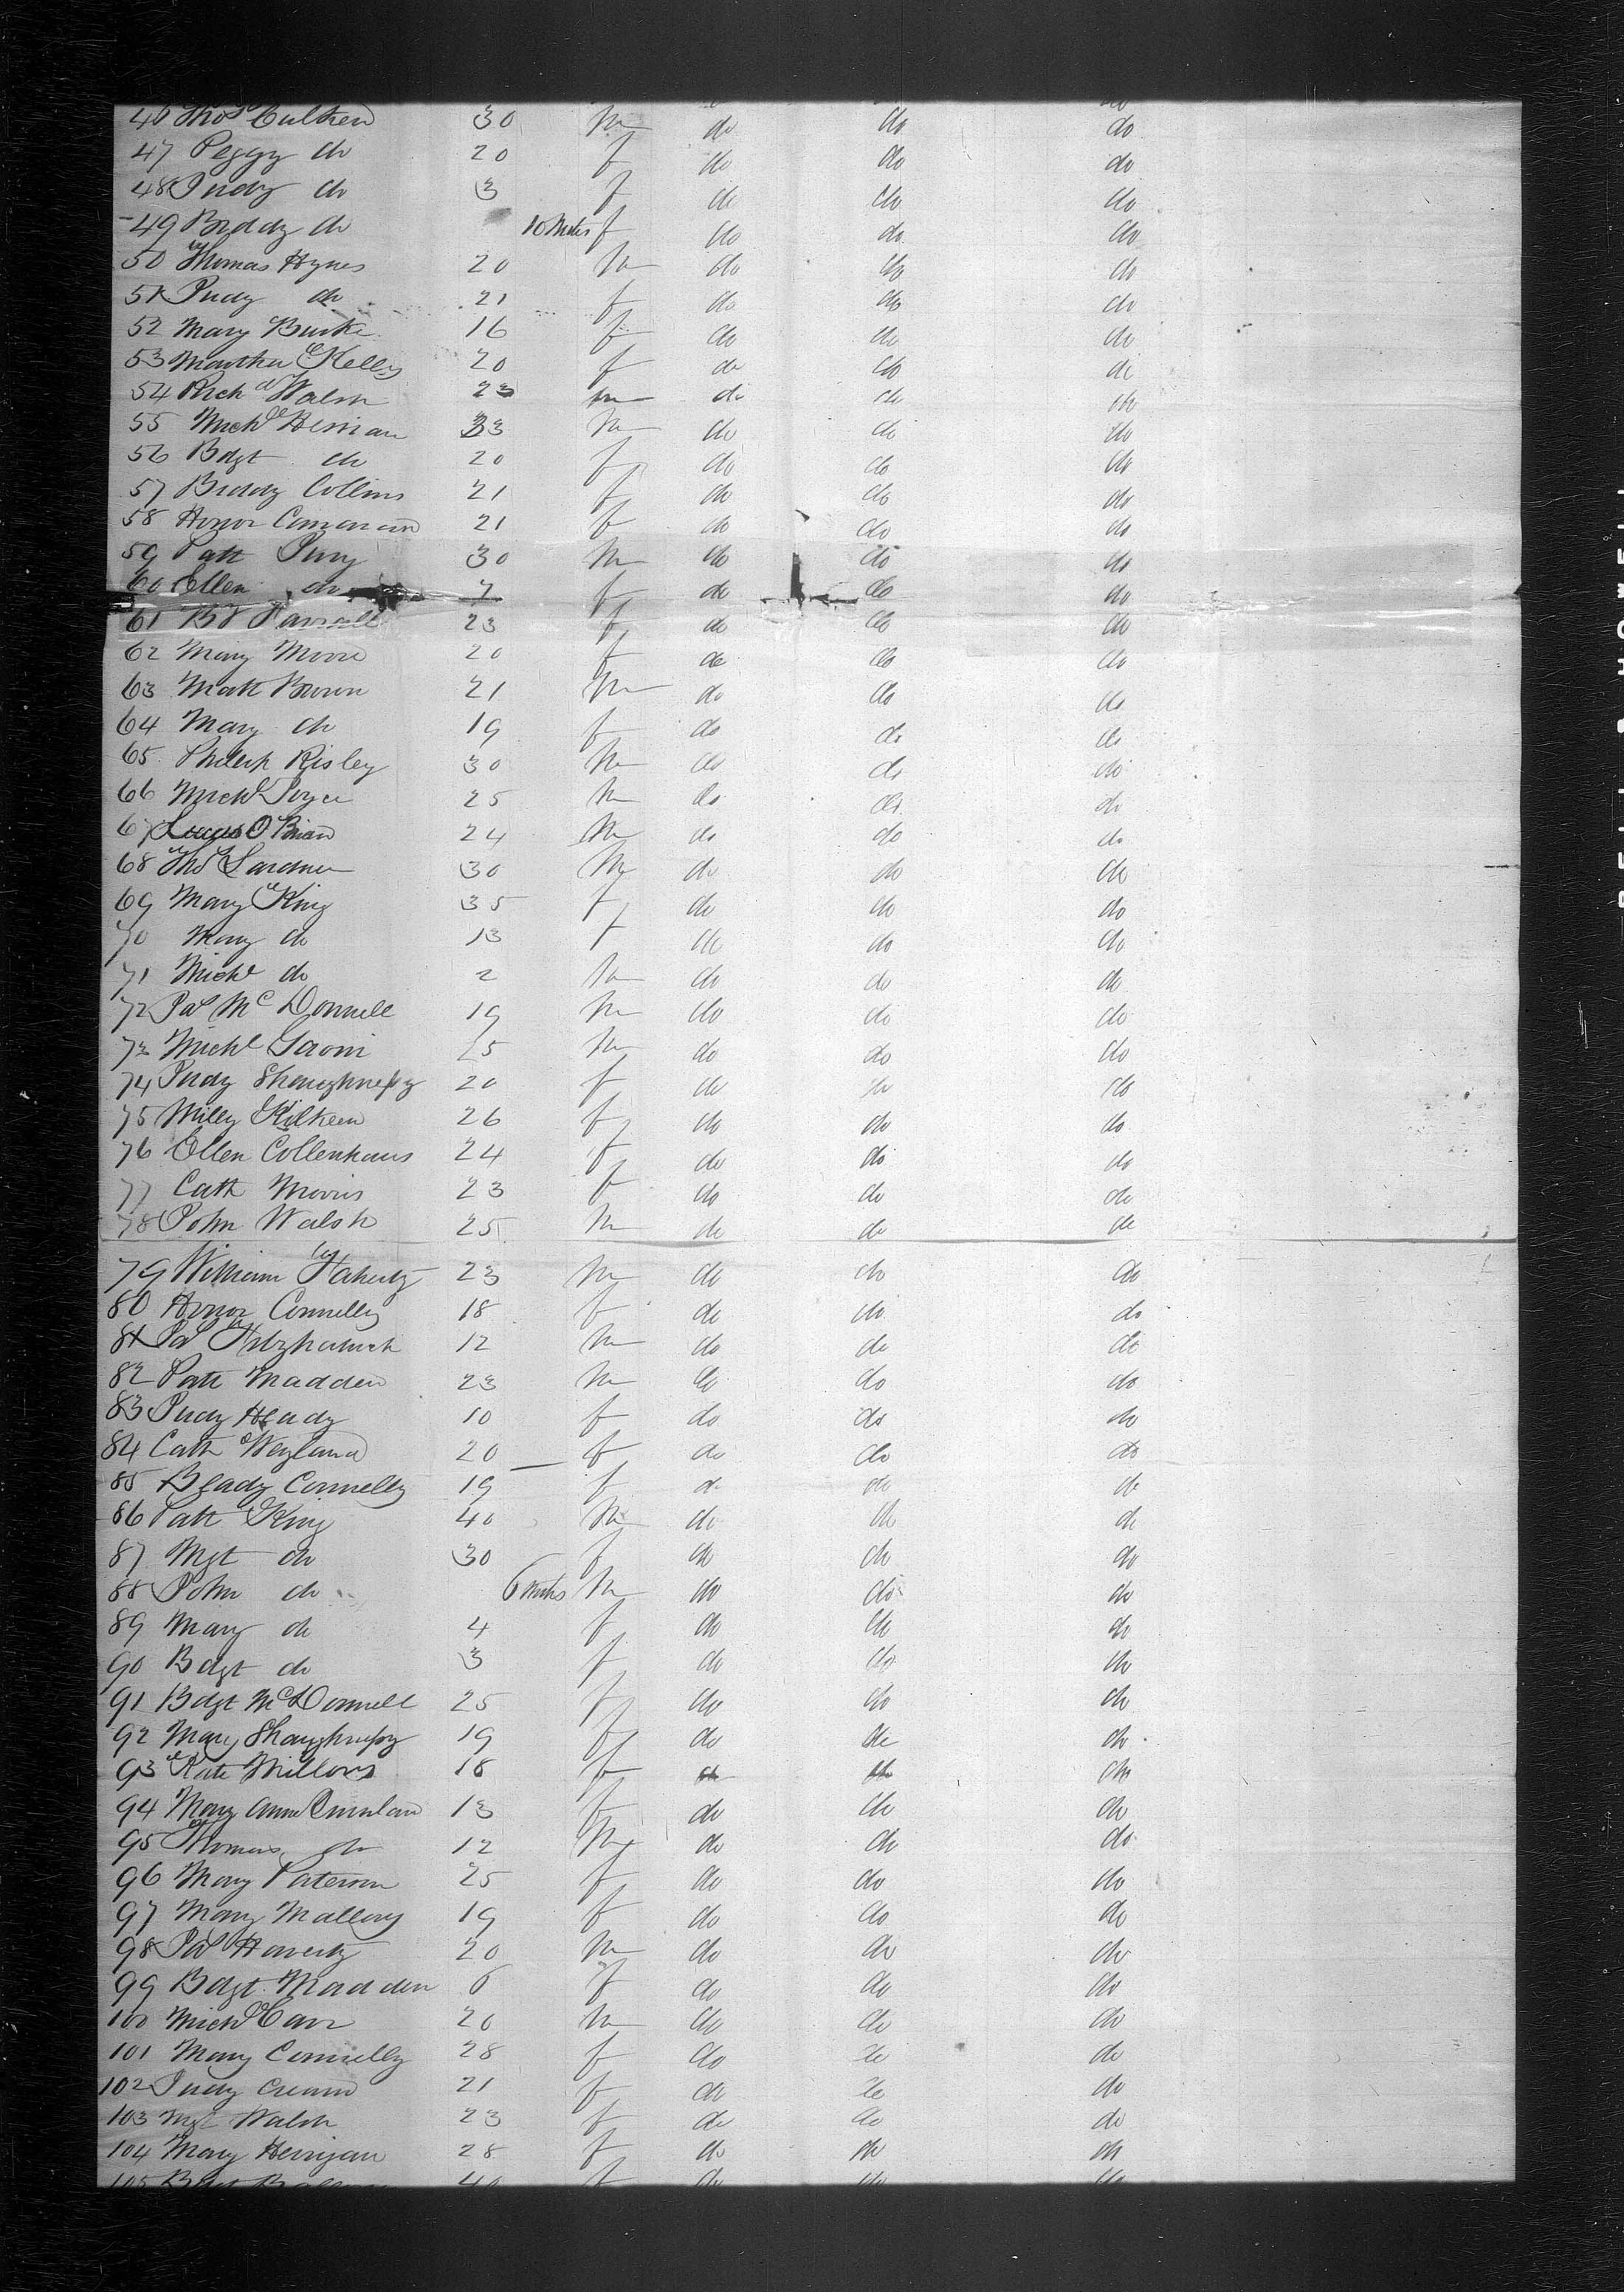 46 Thos Culkeen 30 m do do do
47 Peggy do 20 f do do do
48 Judy do 3 f do do do
49 Biddy do 10 Mths f do do do
50 Thomas Hynes 20 m do do do
51 Judy do 21 f do do do
52 Mary Burke 16 f do do do
53 Martha Kelly 20 f do do do
54 Richd Walsh 23 m do do do
55 Michl 33 m do do do
56 Bdgt do 20 f do do do
57 Biddy Collins 21 f do do do
58 Honor 21 f do do do
59 Patt 30 m do do do
60 Ellen do 7 f do do do
61 Bd Farrell 23 f do do do
62 Mary Moore 20 f do do do
63 Matt Brown 21 m do do do
64 Mary do 19 f do do do
65 Philip Risley 30 m do do do
66 Michl Joyce 25 m do do do
67 O Brian 24 m do do do
68 Thos Lardner 30 m do do do
69 Mary King 35 f do do do
70 Mary do 13 f do do do
71 Michl do 2 m do do do
72 Pat McDonnell 19 m do do do
73 Michl 25 m do do do
74 Judy Shaughnessy 20 f do do do
75 Milly Kilkeen 26 f do do do
76 Ellen Collenhans 24 f do do do
77 Cath Morris 23 f do do do
78 John Walsh 25 m do do do
79 William Flaherty 23 m do do do
80 Honor Connelly 18 f do do do
81 Pat Fitzpatrick 12 m do do do
82 Patt Madden 23 m do do do
83 Judy Heady 10 f do do do
84 Cath Weyland 20 f do do do
85 Beady Connelly 19 f do do do
86 Patt King 40 m do do do
87 Mgt do 30 f do do do
88 John do 6 mths m do do do
89 Mary do 4 f do do do
90 Bdgt do 3 f do do do
91 Bdgt McDonnell 25 f do do do
92 Mary Shaughnessy 19 f do do do
93 Kate Millons 18 f do do do
94 Mary Anne Quinlan 13 f do do do
95 Thomas do 12 m do do do
96 Mary Paterson 25 f do do do
97 Mary Mallory 19 f do do do
98 Pat Haverty 20 m do do do
99 Bdgt Madden 6 f do do do
100 Michl Carr 20 m do do do
101 Mary Connelly 28 f do do do
102 Judy Crean 21 f do do do
103 Mgt Walsh 23 f do do do
104 Mary Herrigan 28 f do do do
105 Bdgt 40 f do do do